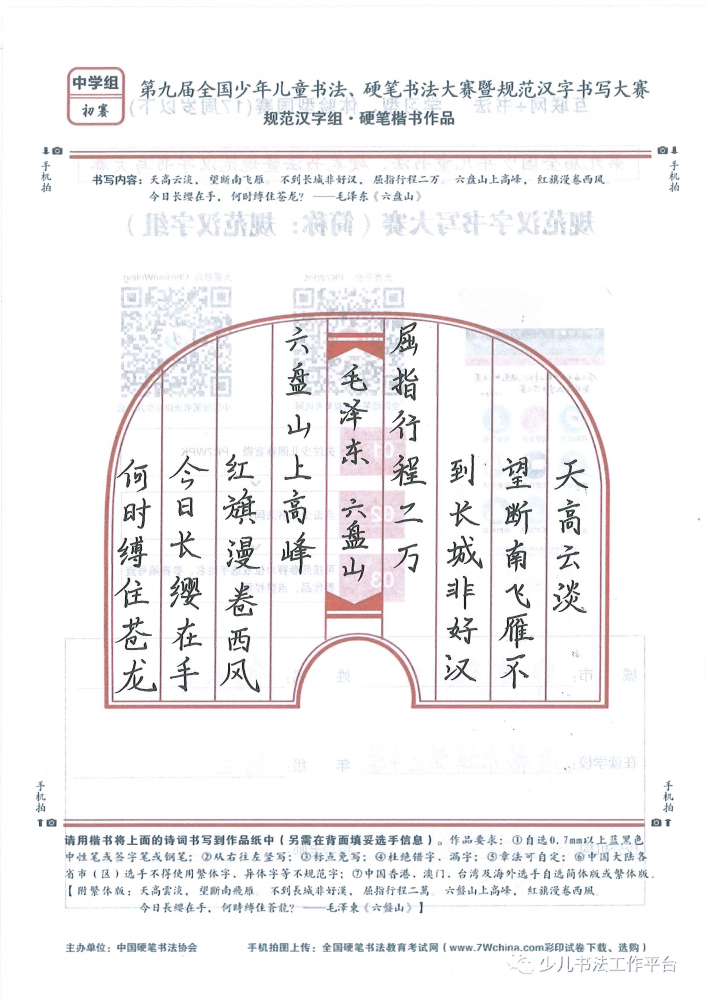 中学组
初赛
第九届全国少年儿童书法、硬笔书法大赛暨规范汉字书写大赛
规范汉字组·硬笔楷书作品
手机拍
手机拍
书写内容：天高云淡， 望断南飞雁。 不到长城非好汉， 屈指行程二万。 六盘山上高峰， 红旗漫卷西风。
今日长缨在手， 何时缚住苍龙？ ——毛泽东《六盘山》
天高云淡
望断南飞雁不
到长城非好汉
屈指行程二万
毛泽东 六盘山
六盘山上高峰
红旗漫卷西风
今日长缨在手
何时缚住苍龙
手机拍
手机拍
请用楷书将上面的诗词书写到作品纸中（另需在背面填妥选手信息）。作品要求：①自选0.7mm以上蓝黑色
中性笔或签字笔或钢笔；②从右往左竖写；③标点免写；④杜绝错字、漏字；⑤章法可自定；⑥中国大陆各
省市（区）选手不得使用繁体字、异体字等不规范字；⑦中国香港、澳门、台湾及海外选手自选简体版或繁体版。
【附繁体版：天高雲淡， 望斷南飛雁。 不到長城非好漢， 屈指行程二萬。 六盤山上高峰， 紅旗漫卷西風。
今日長纓在手， 何時縛住蒼龍？ ——毛澤東《六盤山》】
主办单位：中国硬笔书法协会
手机拍图上传：全国硬笔书法教育考试网（www.7Wchina.com彩印试卷下载、选购）
少儿书法工作平台